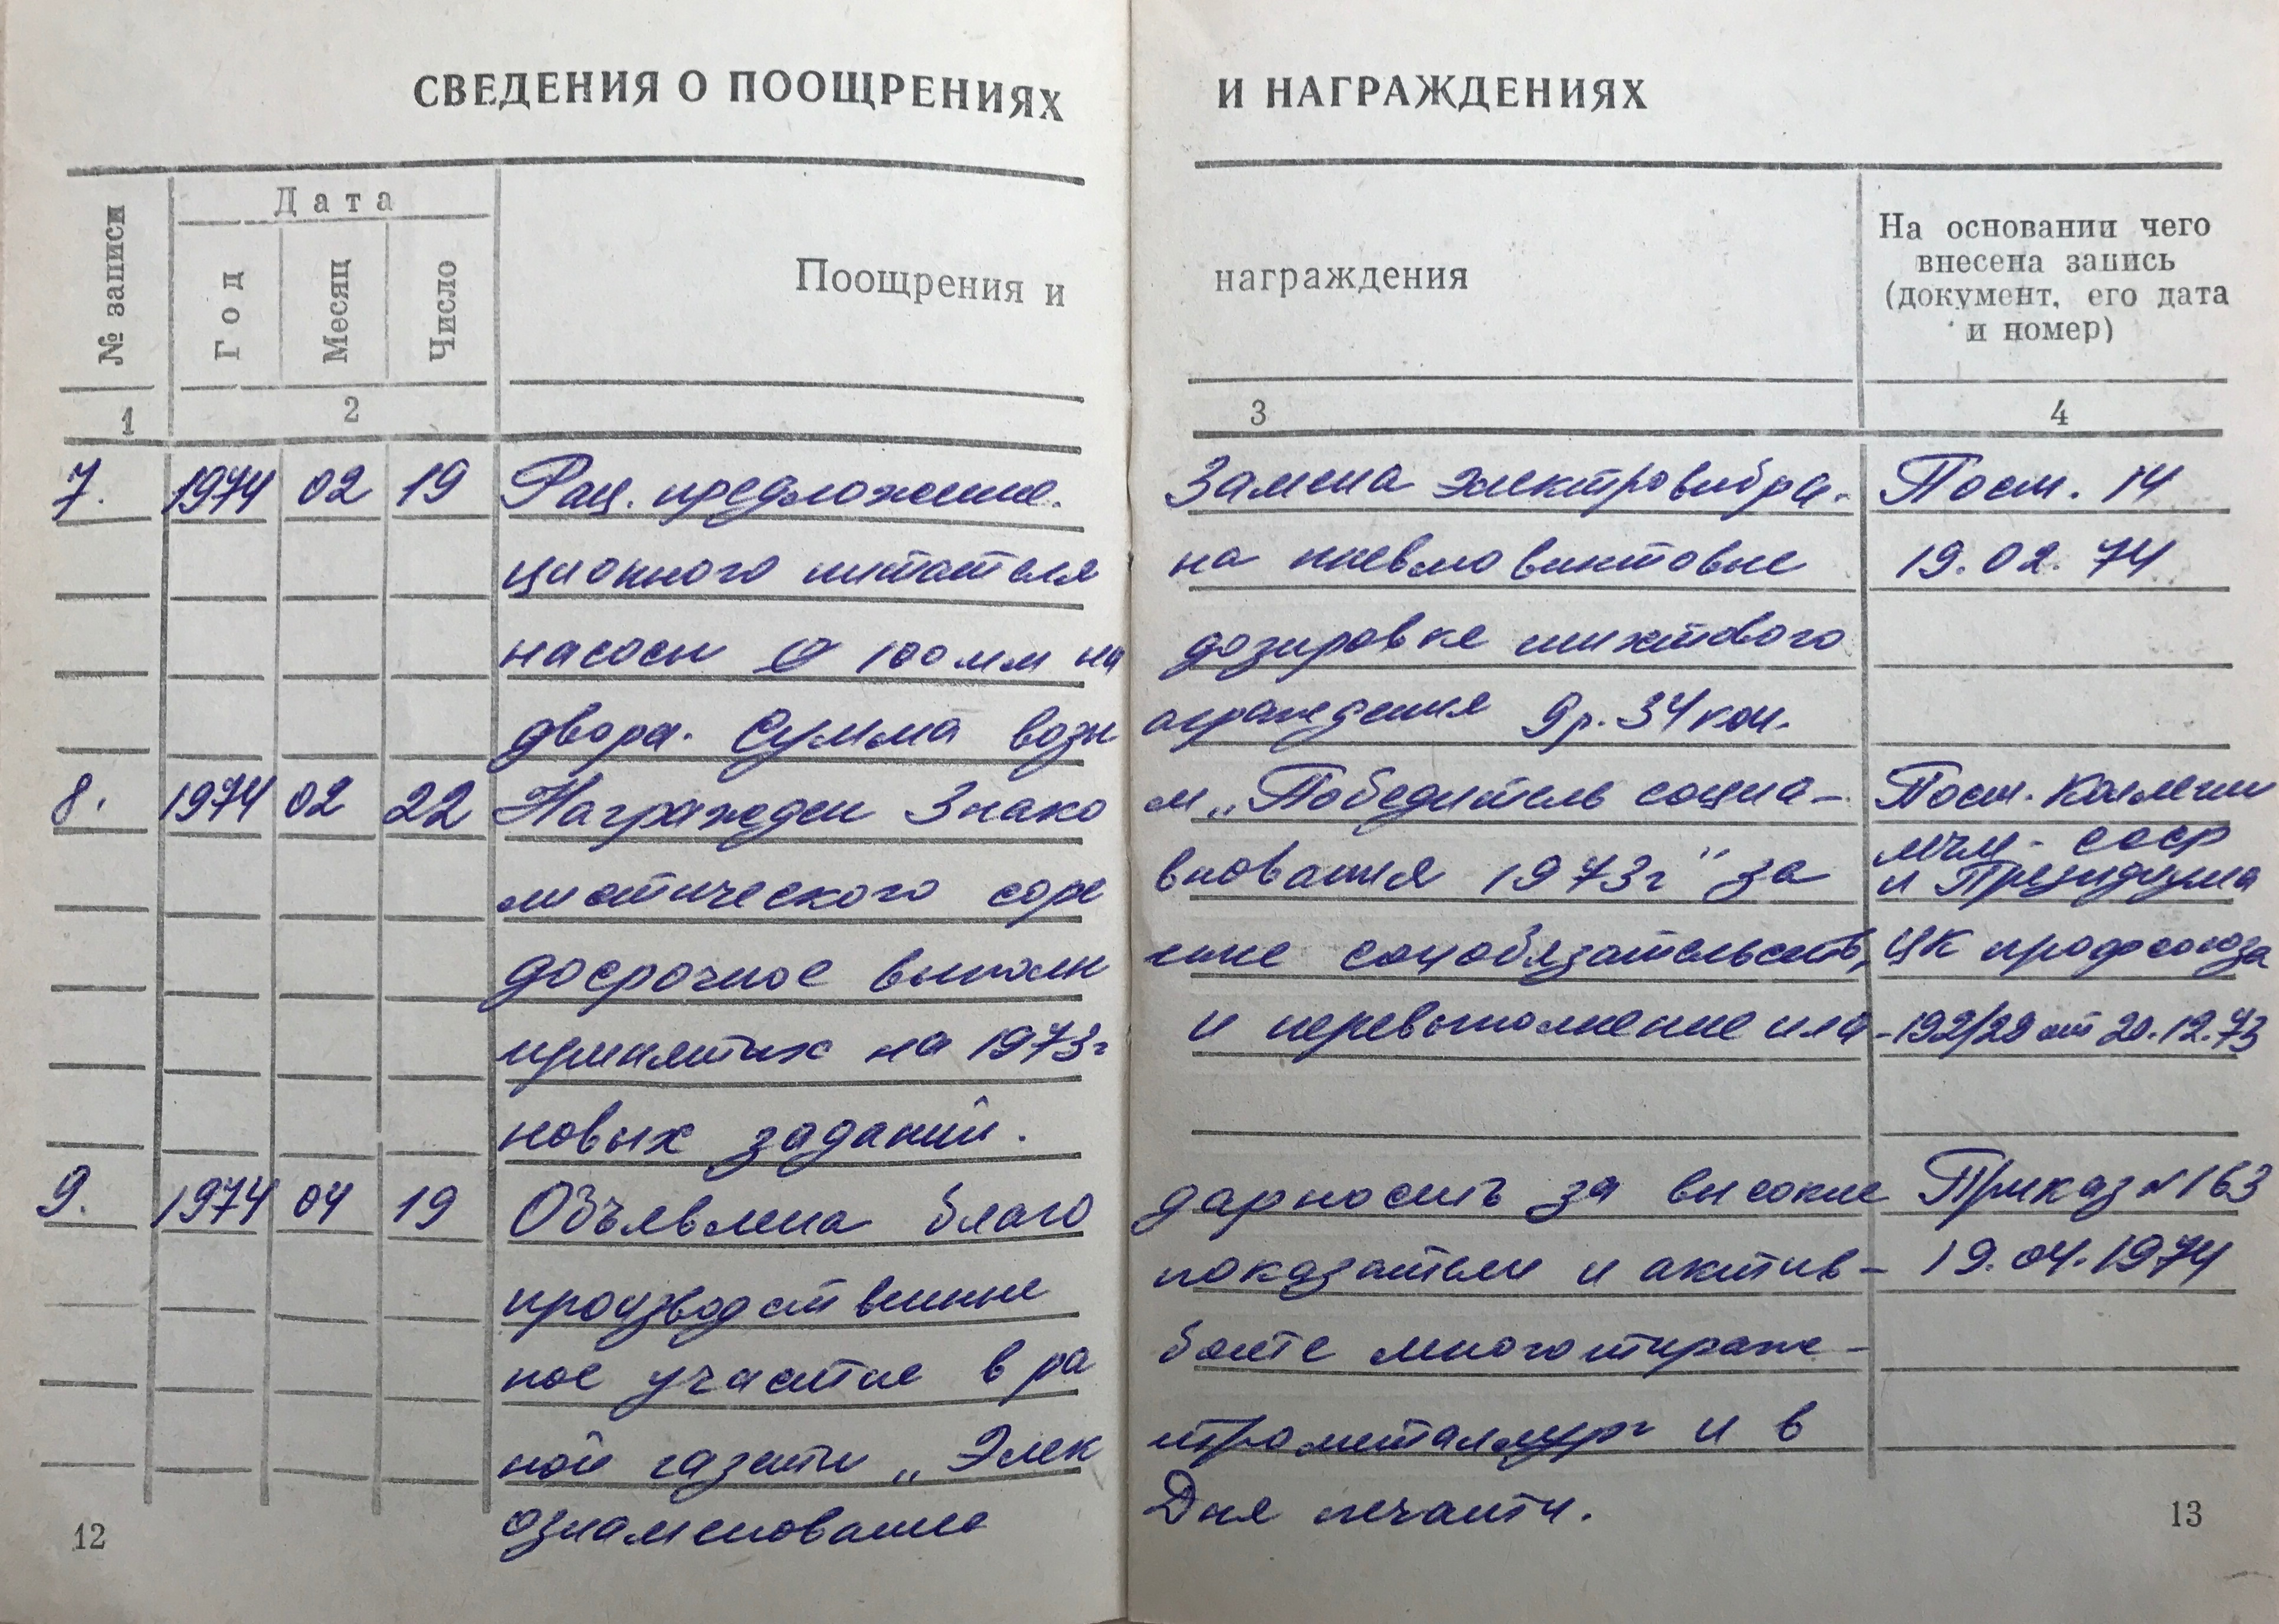 СВЕДЕНИЯ О ПООЩРЕНИЯХ И НАГРАЖДЕНИЯХ
№ записи
Дата
Год
Месяц
Число
Поощрения и награждения
На основании чего
внесена запись
(документ, его дата
и номер)
1 2 3 4
7. 1974 02 19 Рац. предложение. Замена электровибра- Пост. 14
ционного питателя на пневмовинтовые 19.02.74
насосы ф 100 мм на дозировке шихтового
двора. Сумма вознаграждения 9р. 34 коп.
8. 1974 02 22 Награжден Знаком „Победитель социа- Пост. Коллегии
МЧМ - СССР
листического соревнования 1973г" за и Президиума
досрочное выполнение соцобязательств, ЦК профсоюза
принятых на 1973г и перевыполнение пла- 192/20 от 20.12.73
новых заданий.
9. 1974 04 19 Объявлена благодарность за высокие Приказ № 163
производственные показатели и актив- 19.04.1974
ное участие в работе многотираж-
ной газеты „Электрометаллург и в
ознаменование Дня печати.
12 13